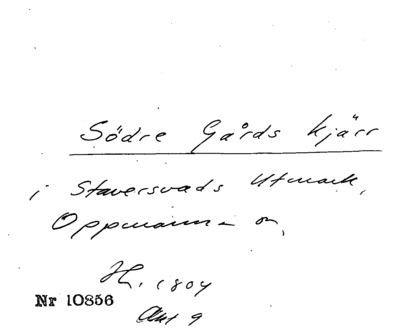 Södre Gårds kjärr
i Staversvads Utmark,
Oppmanna sn,
H. 1804
Nr 10856
Akt 9